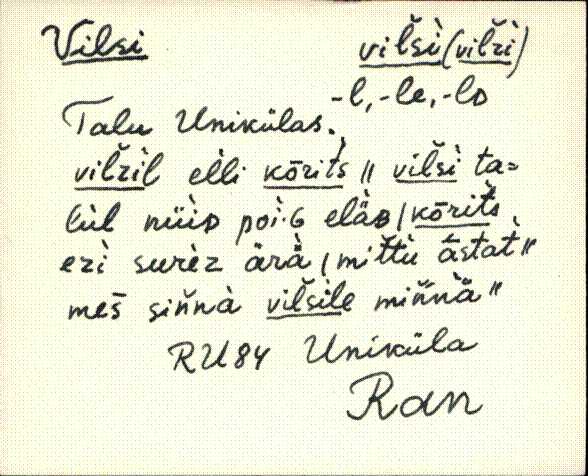 Vilsi vil̆sì̬ (vil̆zi)
-l, -le, -lD
Talu Unikülas.
vil̆zìl elli kōrit̆s // vil̆sì ta=
lùl nüìD poi·G eläB / kōrit̆s
ezi surèz ärä̀, mit̆tù āstat̀ //
mes̄ sin̆nà vil̆sile min̆nä̀ //
RU84 Uniküla
Ran